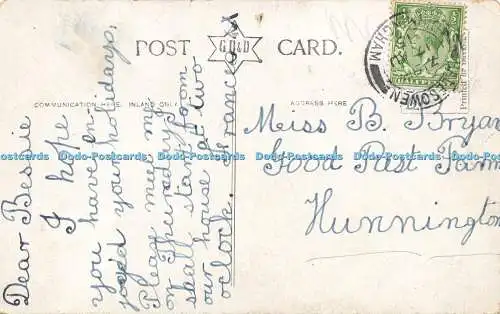 POST CARD.
G D & D
COMMUNICATION HERE, INLAND ONLY
ADDRESS HERE
Dear Bessie
I hope
you have en-
joyed your holidays,
Please meet me
on Thursday I
shall start from
our house at two
o'clock. Frances
Miss B. Bryan
Good Rest Farm
Hunnington
Printed in
Dodo-Postcards Dodo-Postcards Dodo-Postcards Dodo-Postcards